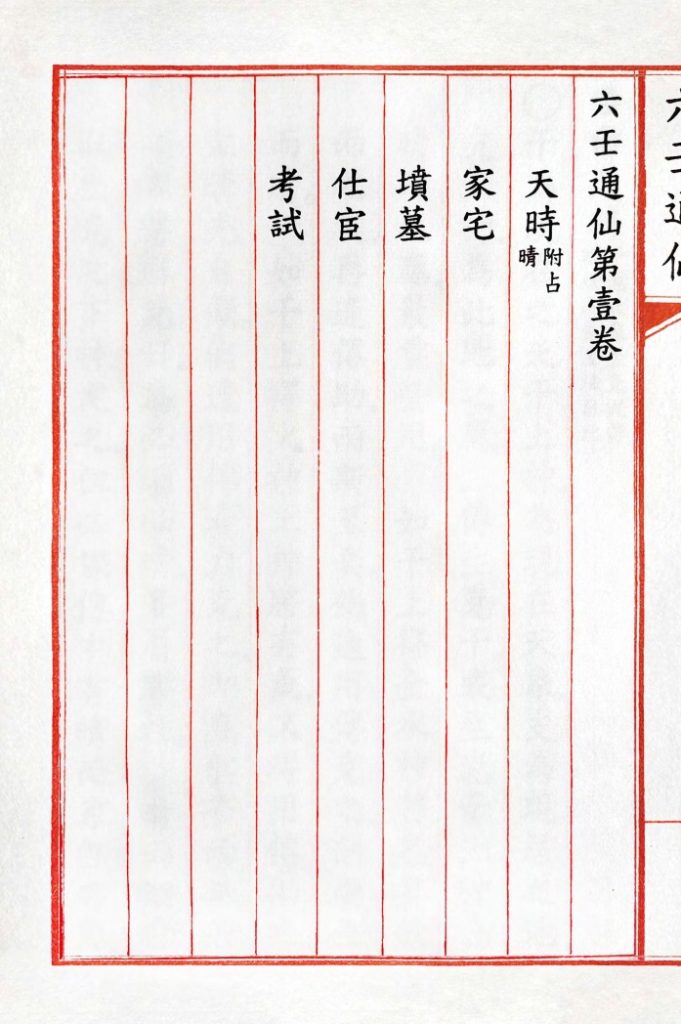 六壬通仙
六壬通仙第壹卷
天時附占晴
家宅
墳墓
仕宦
考試